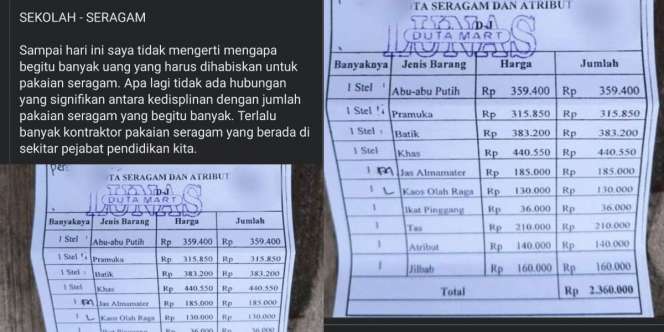 SEKOLAH - SERAGAM
Sampai hari ini saya tidak mengerti mengapa
begitu banyak uang yang harus dihabiskan untuk
pakaian seragam. Apa lagi tidak ada hubungan
yang signifikan antara kedisplinan dengan jumlah
pakaian seragam yang begitu banyak. Terlalu
banyak kontraktor pakaian seragam yang berada di
sekitar pejabat pendidikan kita.
TA SERAGAM DAN ATRIBUT
LUNAS
DJ
DUTA MART
Banyaknya Jenis Barang Harga Jumlah
1 Stel Abu-abu Putih Rp 359.400 Rp 359.400
1 Stel Pramuka Rp 315.850 Rp 315.850
1 Stel Batik Rp 383.200 Rp 383.200
1 Stel Khas Rp 440.550 Rp 440.550
1 M Jas Almamater Rp 185.000 Rp 185.000
1 L Kaos Olah Raga Rp 130.000 Rp 130.000
TA SERAGAM DAN ATRIBUT
LUNAS
DJ
DUTA MART
Banyaknya Jenis Barang Harga Jumlah
1 Stel Abu-abu Putih Rp 359.400 Rp 359.400
1 Stel Pramuka Rp 315.850 Rp 315.850
1 Stel Batik Rp 383.200 Rp 383.200
1 Stel Khas Rp 440.550 Rp 440.550
1 M Jas Almamater Rp 185.000 Rp 185.000
1 L Kaos Olah Raga Rp 130.000 Rp 130.000
1 Ikat Pinggang Rp 36.000 Rp 36.000
1 Tas Rp 210.000 Rp 210.000
1 Atribut Rp 140.000 Rp 140.000
1 Jilbab Rp 160.000 Rp 160.000
Total Rp 2.360.000